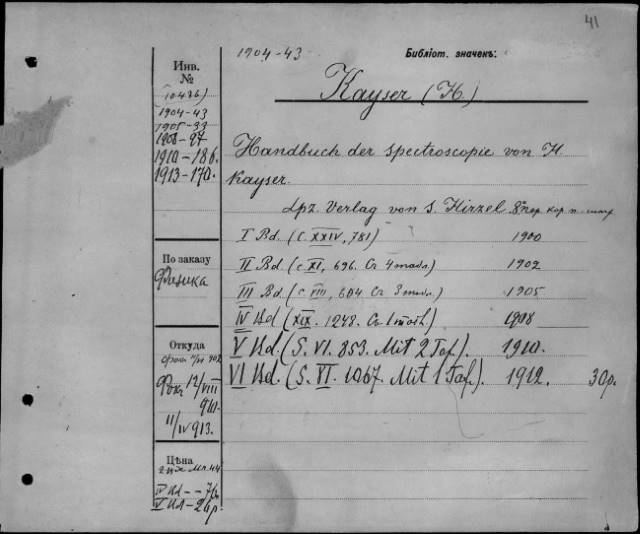 41
1904-43
Библіот. значекъ:
Инв.
№
(10436)
1904-43
1905-33
1908-97
1910-186.
1913-170.
Kayser (H.)
Handbuch der spectroscopie von H.
Kayser.
Lpz. Verlag von S. Hirzel. 8° пер. кор. п.
I Bd. (с. XXIV, 781) 1900
II Bd. (с. XI, 696. Съ 4 табл.) 1902
III Bd. (с. VIII, 604 Съ 3 табл.) 1905
IV Bd (XIX. 1248. Съ 1 табл.) 1908
V Bd. (S. VI. 853. Mit 2 Taf.). 1910.
VI Bd. (S. VI. 1067. Mit 1 Taf.). 1912. 30р.
По заказу
Физика
Откуда
902
Фокъ 12/VIII
910.
11/IV 913.
Цѣна
44
IV
V